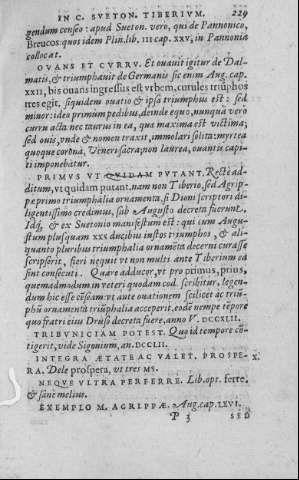 IN C. SVETON. TIBERIVM. 229
gendum censeo: apud Sueton. vero, qui de Pannonico,
Breucos: quos idem Plin. lib. III cap. XXV, in Pannonia
collocat.
OVANS ET CVRRV. Et ouauit igitur de Dal-
matis, & triumphauit de Germanis sic enim Aug. cap.
XXII, bis ouans ingressus est vrbem, curules triũphos
tres egit, siquidem ouatio & ipsa triumphus est: sed
minor: ideo primum pedibus, deinde equo, nunquã vero
curru acta nec taurus in ea, qua maxima est victima;
sed ouis, vnde & nomen traxit, immolari solita: myrtea
quoque corona, Veneri sacra; non laurea, ouantis capi-
ti imponebatur.
PRIMVS VT QVIDAM PVTANT. Recte ad-
ditum, vt quidam putant. nam non Tiberio, sed Agrip-
pæ primo triumphalia ornamenta, si Dioni scriptori di-
ligentissimo credimus, sub Augusto decreta fuerunt.
Idq́, & ex Suetonio manifestum est: qui cum Augu-
stum plusquam XXX ducibus iustos triumphos, & ali-
quanto pluribus triumphalia ornamẽta decerni curasse
scripserit, fieri nequit vt non multi ante Tiberium ea
sint consecuti. Quare adducor, vt pro primus, prius,
quemadmodum in veteri quodam cod. scribitur, legen-
dum hic esse cẽseam: vt ante ouationem scilicet ac triũ-
phũ ornamentà triũphalia acceperit. eodẽ nempe tẽpore
quo fratri eius Druso decreta fuere, anno V. DCCXLIII.
TRIBVNICIAM POTEST. Quo id tempore cõ-
tigerit, vide Sigonium, an. DCCLII.
INTEGRA AETATE AC VALET. PROSPE- X.
RA. Dele prospera, vt tres MS.
NEQVE VLTRA PERFERRE. Lib. opt. ferre.
& sane melius.
EXEMPLO M. AGRIPPÆ. Aug. cap. LXVI.
P 3 SED